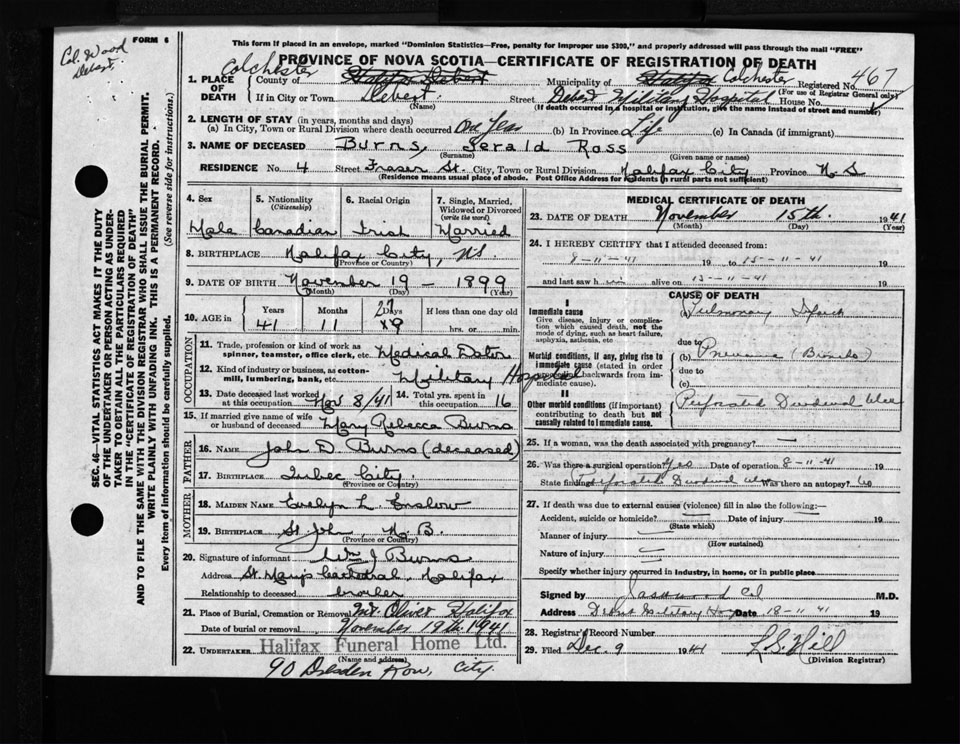 Col. Wood
Debert.
FORM 6
This form if placed in an envelope, marked "Dominion Statistics—Free, penalty for improper use $300," and properly addressed will pass through the mail "FREE"
PROVINCE OF NOVA SCOTIA—CERTIFICATE OF REGISTRATION OF DEATH
1. PLACE OF DEATH
County of Colchester Halifax Debert Municipality of Halifax Colchester Registered No. 467
(For use of Registrar General only)
If in City or Town Debert Street Debert Military Hospital House No.
(Name) (If death occurred in a hospital or institution, give the name instead of street and number)
2. LENGTH OF STAY (in years, months and days)
(a) In City, Town or Rural Division where death occurred One Year (b) In Province Life (c) In Canada (if immigrant)
3. NAME OF DECEASED Burns, Gerald Ross
(Surname) (Given name or names)
RESIDENCE No. 4 Street Fraser St. City, Town or Rural Division Halifax City Province N.S
(Residence means usual place of abode. Post Office Address for residents in rural parts not sufficient)
4. Sex 5. Nationality (Citizenship) 6. Racial Origin 7. Single, Married, Widowed or Divorced (write the word)
Male Canadian Irish Married
8. BIRTHPLACE Halifax City, N.S.
(Province or Country)
9. DATE OF BIRTH November 19 – 1899
(Month) (Day) (Year)
10. AGE in Years Months Days If less than one day old
41 11 27 hrs. or min.
OCCUPATION
11. Trade, profession or kind of work as spinner, teamster, office clerk, etc. Medical Doctor
12. Kind of industry or business, as cotton-mill, lumbering, bank, etc. Military Hospital
13. Date deceased last worked at this occupation Nov 8/41 14. Total yrs. spent in this occupation 16
15. If married give name of wife or husband of deceased Mary Rebecca Burns
FATHER
16. NAME John D. Burns (deceased)
17. BIRTHPLACE Qubec City
(Province or Country)
MOTHER
18. MAIDEN NAME Evelyn L. Enslow
19. BIRTHPLACE St John, N.B.
(Province or Country)
20. Signature of informant Wm J Burns
Address St. Mary's Cathedral, Halifax
Relationship to deceased brother
21. Place of Burial, Cremation or Removal Mt. Olivet Halifax
Date of burial or removal November 19th 1941
22. UNDERTAKER Halifax Funeral Home Ltd.
(Name and address)
90 Dresden Row, City.
MEDICAL CERTIFICATE OF DEATH
23. DATE OF DEATH November 15th. 1941
(Month) (Day) (Year)
24. I HEREBY CERTIFY that I attended deceased from:
8-11-41 19 to 15-11-41 19
and last saw h alive on 19
CAUSE OF DEATH
I
Immediate cause
Give disease, injury or complication which caused death, not the mode of dying, such as heart failure, asphyxia, asthenia, etc
(a)
due to
Morbid conditions, if any, giving rise to immediate cause (stated in order proceeding backwards from immediate cause).
(b) Pneumonia (Broncho)
due to
(c)
II
Other morbid conditions (if important) contributing to death but not causally related to immediate cause.
Perforated Duodenal Ulcer
25. If a woman, was the death associated with pregnancy? —
26. Was there a surgical operation? Yes Date of operation 8-11-41 19
State findings Perforated Duodenal Ulcer Was there an autopsy? No
27. If death was due to external causes (violence) fill in also the following:—
Accident, suicide or homicide? Date of injury 19
(State which)
Manner of injury
(How sustained)
Nature of injury
Specify whether injury occurred in industry, in home, or in public place
Signed by M.D.
Address Debert Military Hosp Date 18-11-41 19
28. Registrar's Record Number
29. Filed Dec. 9 1941 L.S. Hill
(Division Registrar)
SEC. 46—VITAL STATISTICS ACT MAKES IT THE DUTY
OF THE UNDERTAKER OR PERSON ACTING AS UNDER-
TAKER TO OBTAIN ALL THE PARTICULARS REQUIRED
IN THE "CERTIFICATE OF REGISTRATION OF DEATH"
AND TO FILE THE SAME WITH THE DIVISION REGISTRAR WHO SHALL ISSUE THE BURIAL PERMIT.
WRITE PLAINLY WITH UNFADING INK. THIS IS A PERMANENT RECORD.
Every item of information should be carefully supplied. (See reverse side for instructions.)